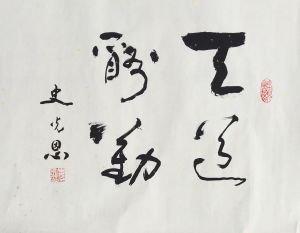 天道
酬勤
史光恩